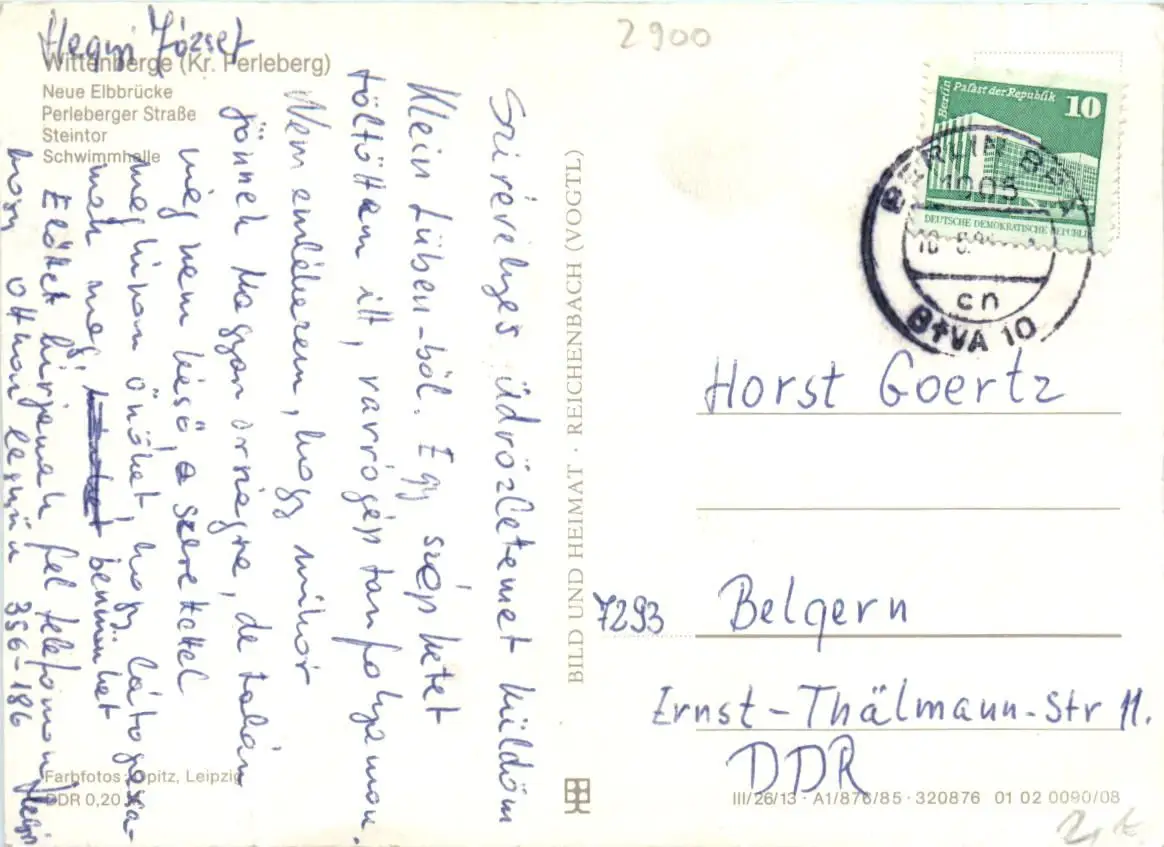 Hegyi József
Wittenberge (Kr. Perleberg)
Neue Elbbrücke
Perleberger Straße
Steintor
Schwimmhalle
Szivélyes üdvözletemet küldöm
Klein Lüben-ből. Egy szép hetet
töltöttem itt, varrógép tanfolyamon.
Nem emlékezem, hogy mikor
jönnek Magyarországra, de talán
még nem késő, a szeretettel
meghívom önöket, hogy látogassa-
nak meg bennünket
Előtte hívjanak fel telefonon,
hogy otthon legyünk 356-186 Hegyi
Farbfotos: Opitz, Leipzig
DDR 0,20
BILD UND HEIMAT · REICHENBACH (VOGTL)
2900
Berlin Palast der Republik
10
DEUTSCHE DEMOKRATISCHE REPUBLIK
BERLIN BPA
1005
cn
BtVA 10
Horst Goertz
7293 Belgern
Ernst-Thälmann-Str 11.
DDR
III/26/13 · A1/876/85 · 320876 01 02 0090/08